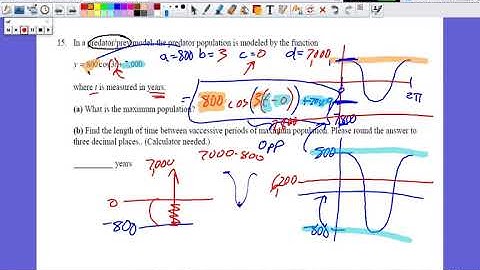 15. In a predator/prey model, the predator population is modeled by the function
a=800 b=3 c=0 d=7000
y = 800 cos 3t + 7,000
where t is measured in years.
= 800 cos(3(t-0))
(a) What is the maximum population?
2π
7,800
(b) Find the length of time between successive periods of maximum population. Please round the answer to
three decimal places.. (Calculator needed.)
opp
________ years
7,000
7000-800
800
6,200
0
-800
-800